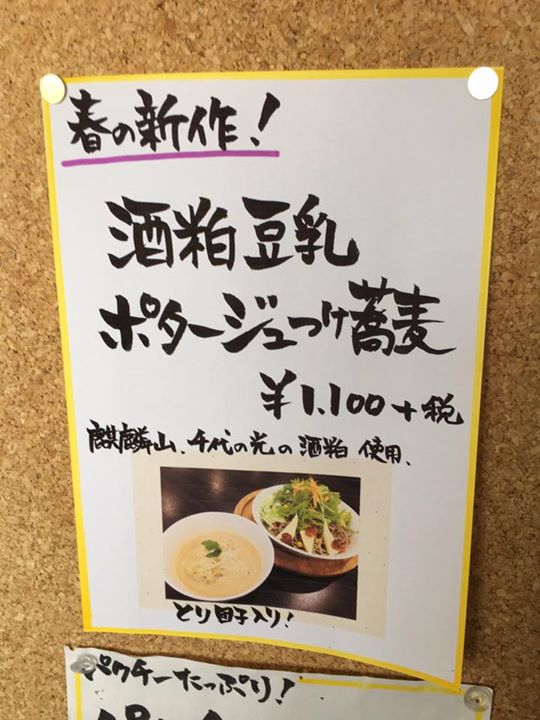 春の新作！
酒粕豆乳
ポタージュつけ蕎麦
¥1,100+税
麒麟山、千代の光の酒粕使用、
とり団子入り！
パクチーたっぷり！